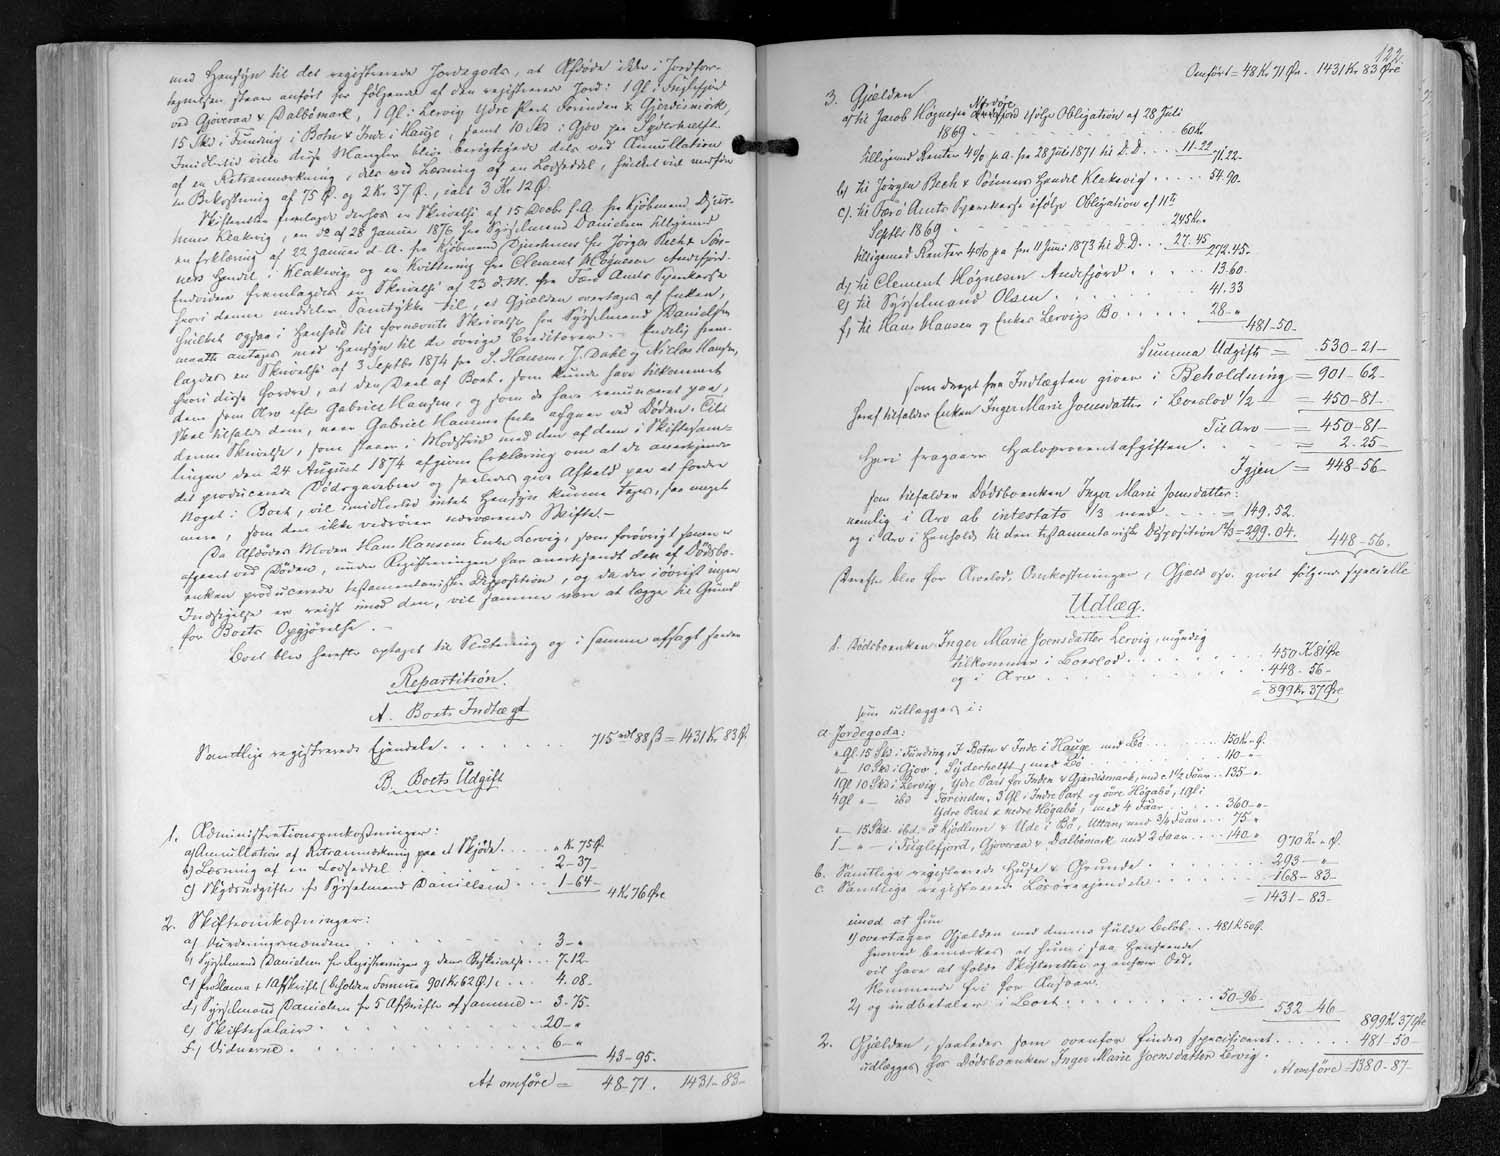 med Hensyn til det registrerede Jordegods, at Afdøde ikke i Jordfor-
tegnelsen staar anført for følgende af den registrerede Jord: 1 Gl i Fuglefjord
ved Gjøveraa & Dalbømark, 1 Gl i Lervig Ydre Part Forinden & Gjerdismark,
15 Skd i Funding i Botn & Inde i Hauge, samt 10 Skd i Gjov paa Syderhelft.
Imidlertid ville disse Mangler blive berigtigede dels ved Annullation
af en Retsanmærkning, dels ved Løsning af en Lodseddel, hvilket vil medføre
en Bekostning af 75 Ø. og 2 Kr 37 Ø., ialt 3 Kr 12 Ø.
Skifteretten fremlagde derhos en Skrivelse af 15 Decbr f.A. fra Kjøbmand Djur-
huus Klaksvig, en do af 28 Januar 1876 fra Sysselmand Danielsen tilligemed
en Erklæring af 22 Januar d. A. fra Kjøbmand Djurhuus for Jørgen Bech & Søn-
ners Handel i Klaksvig og en Kvittering fra Clement Høgnesen Andefjord.
Endvidere fremlagdes en Skrivelse af 23 d.M. fra Færø Amts Sparekasse
hvori denne meddeler Samtykke til, at Gjælden overtages af Enken,
hvilket ogsaa i Henhold til fornævnte Skrivelse fra Sysselmand Danielsen
maatte antages med Hensyn til de øvrige Creditorer. – Endelig frem-
lagdes en Skrivelse af 3 Septbr 1874 fra S. Hansen, J. Dahl og Niclas Hansen,
hvori disse fordre, at den Deel af Boet, som kunde have tilkommet
dem som Arv efter Gabriel Hansen, og som de have renunceret paa,
skal tilfalde dem, naar Gabriel Hansens Enke afgaar ved Døden. Til
denne Skrivelse, som staaer i Modstrid med den af dem i Skiftesam-
lingen den 24 August 1874 afgivne Erklæring om at de anerkjende
det producerede Dødsgavebrev og saaledes give Afkald paa at fordre
Noget i Boet, vil imidlertid intet Hensyn kunne tages, saa meget
mere, som den ikke vedrører nærværende Skifte. –
Da Afdødes Moder Hans Hansens Enke Lervig, som forøvrigt senere er
afgaaet ved Døden, under Registreringen har anerkjendt den af Dødsbo-
enken producerede testamentariske Disposition, og da der iøvrigt ingen
Indsigelse er reist imod den, vil samme være at lægge til Grund
for Boets Opgjørelse. –
Boet blev herefter optaget til Slutning og i samme afsagt saadan
Repartition.
A. Boets Indtægt
Samtlige registrerede Ejendele . . . . . . . 715 rdl 88 ß = 1431 Kr 83 Ø.
B. Boets Udgift
1. Administrationsomkostninger:
a) Annullation af Retsanmærkning paa et Skjøde . . . . " Kr 75 Ø.
b) Løsning af en Lodseddel . . . . . 2–37
c) Skydsudgifter for Sysselmand Danielsen . . . 1–64– 4 Kr 76 Øre
2. Skifteomkostninger:
a) Vurderingsmændene . . . . . . . . 3–"
b) Sysselmand Danielsen for Registreringen og dens Beskrivelse . . . 7.12
c) Proclama + 1 Afskrift (beholden Formue 901 Kr 62 Ø.) . . . . 4.08.
d) Sysselmand Danielsen for 5 Afskrifter af samme – 3.75.
e) Skiftesalair . . . . . . . . 20–"
f) Vidnerne . . . . . . . . 6–"
43–95.
At omføre = 48–71. 1431–83–
122.
Omført = 48 Kr 71 Øre. 1431 Kr 83 Øre
3. Gjælden
a) til Jacob Høgnesen Nordøre Andefjord ifølge Obligation af 28 Juli
1869 . . . . . . . . 60 Kr.
tilligemed Renter 4 % p.a. fra 28 Juli 1871 til D.D. . . . 11.22 71.22.
b) til Jørgen Bech & Sønners Handel Klaksvig . . . . . 54.90.
c) til Færø Amts Sparekasse ifølge Obligation af 11te
Septbr 1869 . . . . . . . 245 Kr.
tilligemed Renter 4 % pa fra 11 Juni 1873 til D.D. . . . 27.45 272.45.
d) til Clement Høgnesen Andefjord . . . . . 13.60.
e) til Sysselmand Olsen . . . . . . . 41.33
f) til Hans Hansen og Enkes Lervigs Bo . . . . . 28–"
481–50–
Summa Udgift = 530–21–
som draget fra Indtægten giver i Beholdning = 901–62–
heraf tilfalder Enken Inger Marie Joensdatter i Boeslod 1/2 = 450–81–
Til Arv — = 450–81–
Heri fragaaer Halvprocentafgiften . . . . = 2.25–
Igjen = 448–56–
som tilfalder Dødsboenken Inger Marie Joensdatter:
nemlig i Arv ab intestato 1/3 med . . . . = 149.52.
og i Arv i Henhold til den testamentariske Disposition 2/3 = 299.04. 448–56.
Derefter blev for Arvelod, Omkostninger, Gjæld osv. gjort følgende specielle
Udlæg.
1. Dødsboenken Inger Marie Joensdatter Lervig, myndig
tilkommer i Boeslod . . . . . . . . 450 Kr 81 Øre
og i Arv . . . . . . . . . 448–56–
= 899 Kr. 37 Øre
som udlægges i:
a Jordegods:
" Gl. 15 Skd i Funding, I Botn & Inde i Hauge med Bø . . . . . 150 Kr. Ø.
" – 10 Skd i Gjov, Syderhelft, med Bø . . . . . . . 110–"
1 Gl 10 Skd i Lervig, Ydre Part for Inden & Gjerdismark, med c. 1 1/2 Faar . . 135–"
4 gl " – ibd Forinden, 3 Gl i Indre Part og øvre Høgabø, 1 Gl i
Ydre Part & nedre Høgabø, med 4 Faar . . . . . 360–"
" – 15 Skd. ibd. a Kjødlum & Ude i Bø, Uttan, med 3/4 Faar . . . 75"
1 – " – i Fuglefjord, Gjøveraa & Dalbømark med 2 Faar . . . 140" 970 Kr. " Ø.
b. Samtlige registrerede Huse & Grunde . . . . . . . 293–"
c Samtlige registrerede Løsøreejendele . . . . . . . 168–83–
= 1431–83–
imod at hun
1) overtager Gjælden med dennes fulde Beløb . . . 481 Kr. 50 Ø.
hvorved bemærkes at hun i saa Henseende
vil have at holde Skifteretten og enhver Ved-
kommende fri for Ansvar.
2) og indbetaler i Boet . . . . . . . 50–96– 532–46–
899 Kr. 37 Øre
2. Gjælden, saaledes som ovenfor findes specificeret . . . . . . 481–50–
udlægges hos Dødsboenken Inger Marie Joensdatter Lervig.
At omføre = 1380–87–